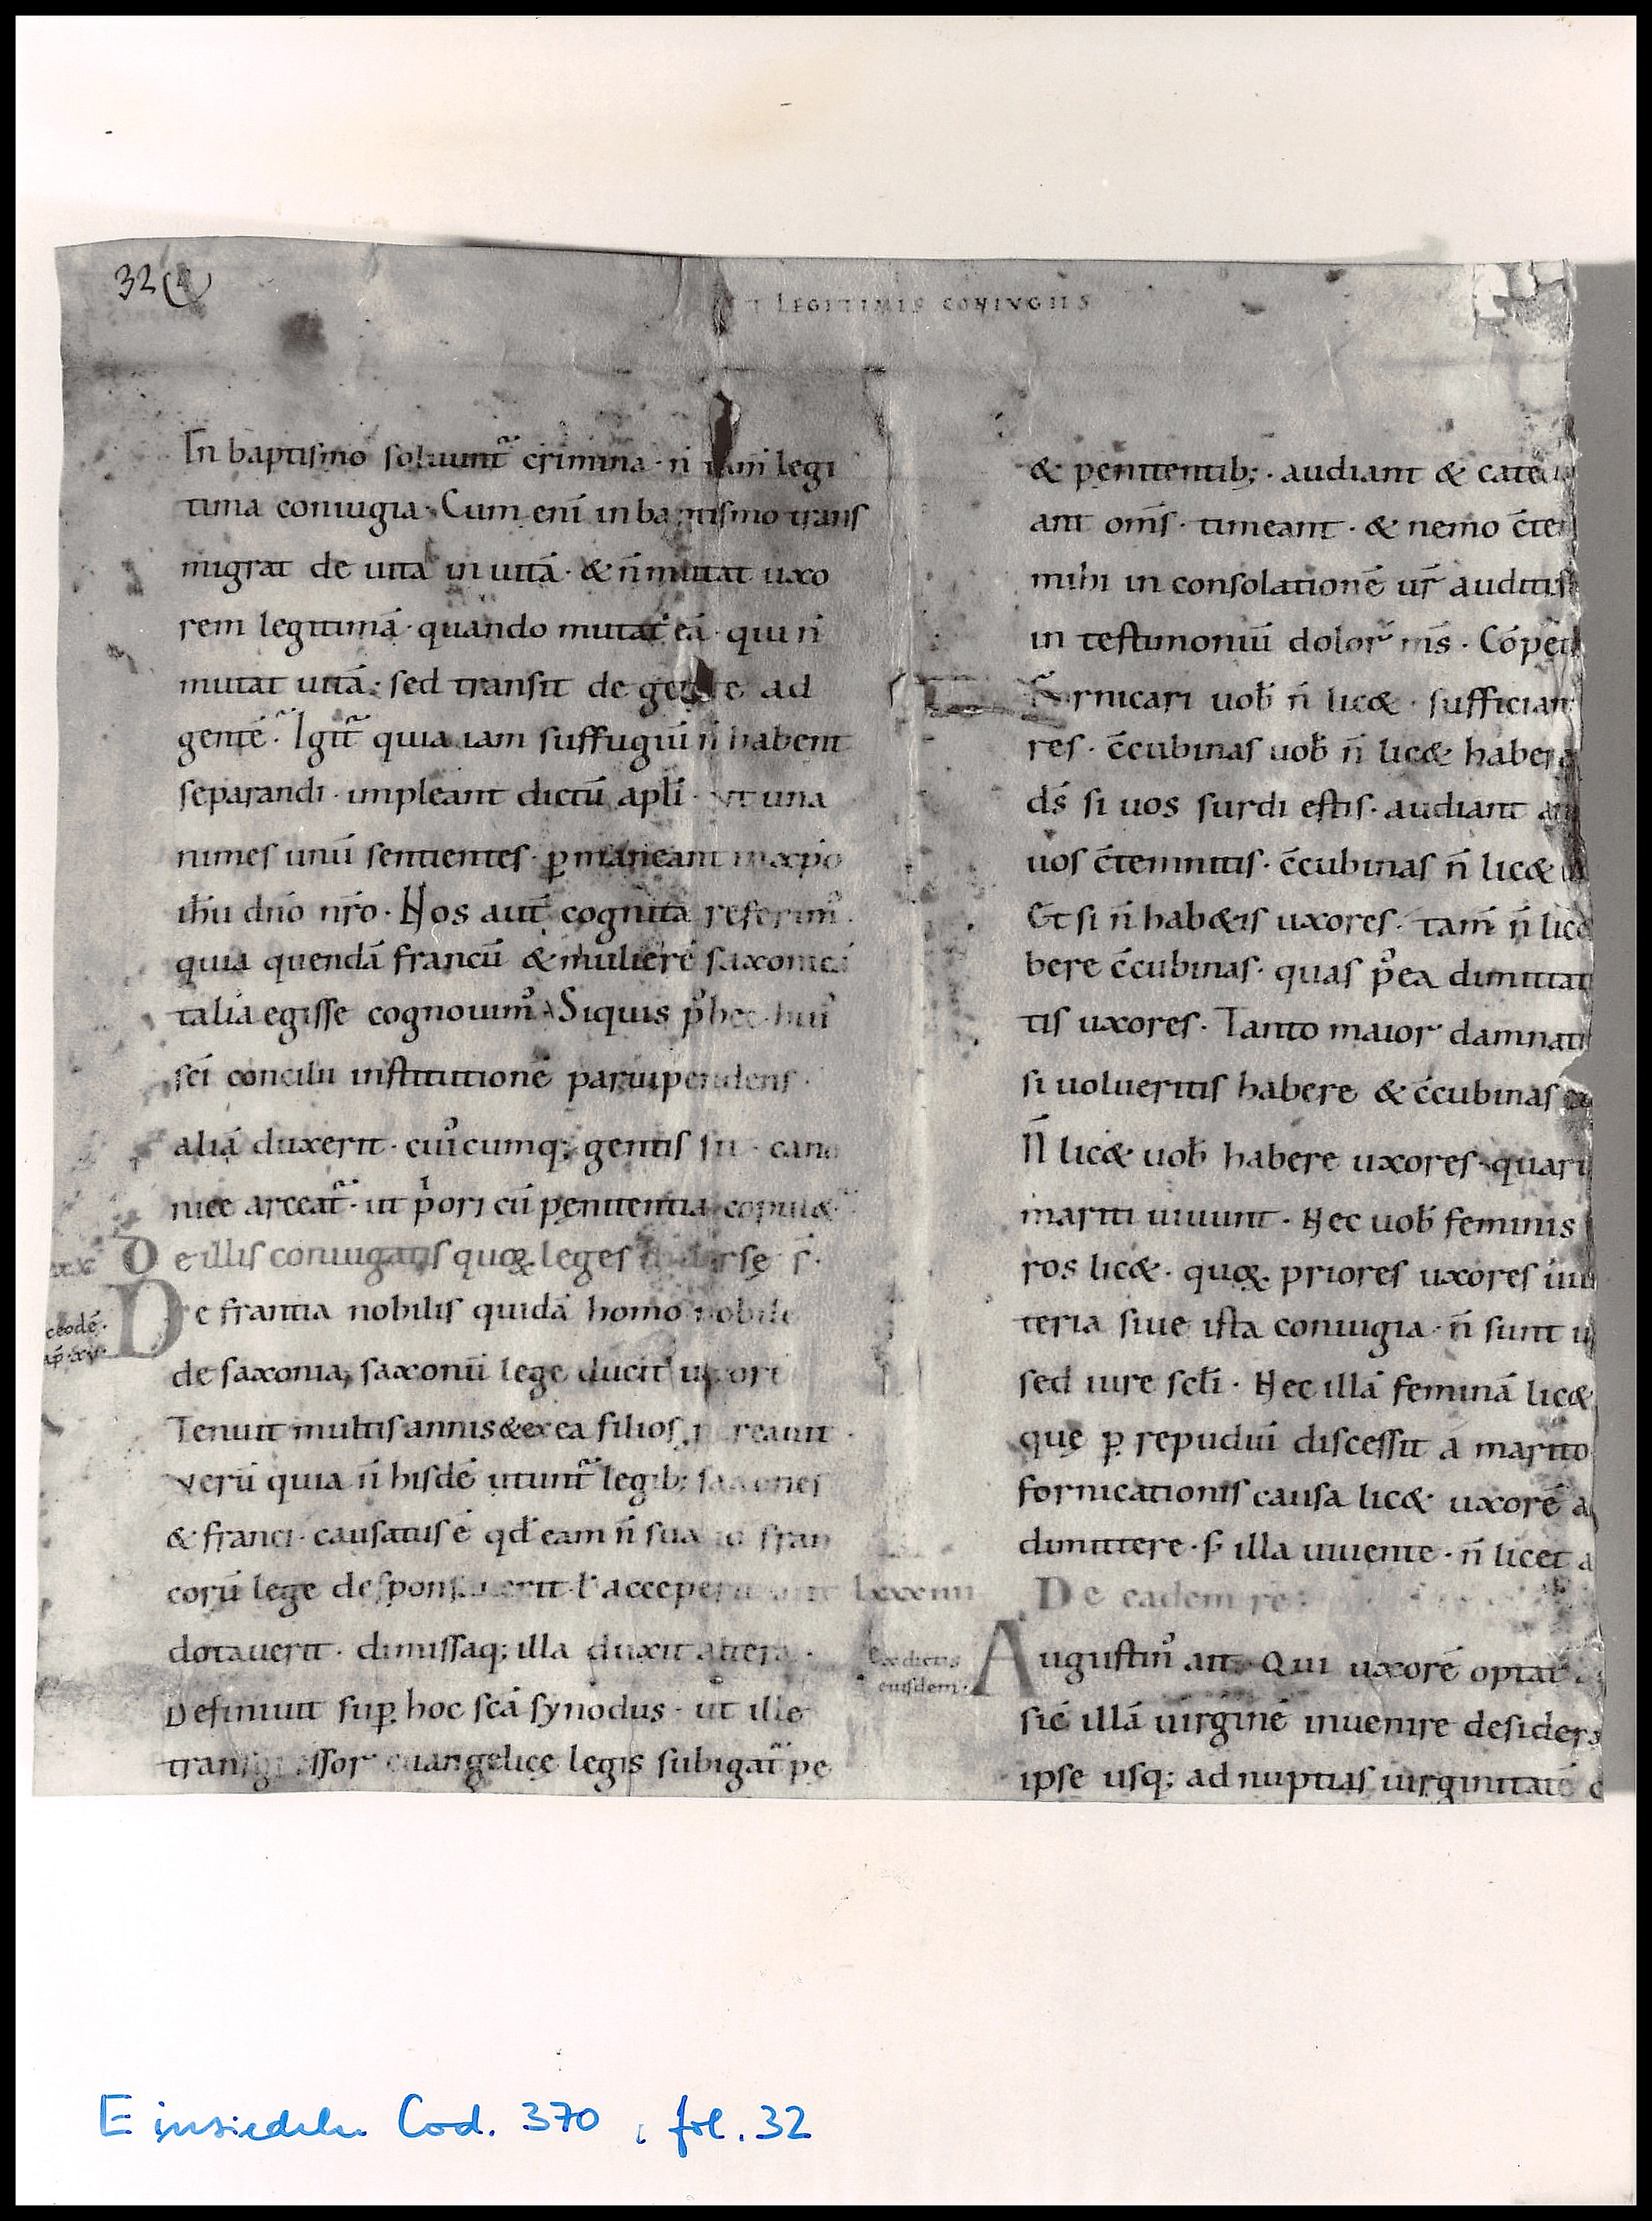 32
LEGITIMIS CONIVGIIS
In baptismo soluunt᷑ crimina · n̄ legi
tima coniugia · Cum eni᷑ in baptismo trans
migrat de uita in uitā · & n̄ mutat uxo
rem legitimā · quando mutat eā · qui n̄
mutat uitā · sed transit de gente ad
gentē · Igit᷑ quia iam suffugiū n̄ habent
separandi · impleant dictū apl̄i · ut una
nimes unū sentientes · ꝑmaneant in xp̄o
ih̄u dn̄o nr̄o · Nos aut̄ cognita referimꝰ ·
quia quendā francū & mulierē saxonicā
talia egisse cognouimꝰ · Siquis pꝰ hec hui᷒
sc̄i concilii institutionē paruipendens ·
aliā duxerit · cuiꝰcumq; gentis sit · cano
nice arceat᷑ · ut p̍ori cū penitentia copulet᷑
De illis coniugatis quoꝝ leges diuerse s̄ ·
ex eodē ·
cap̄ · xv ·
De frantia nobilis quidā homo nobile
de saxonia, saxonū lege ducit uxorē
Tenuit multis annis & ex ea filios creauit ·
verū quia n̄ hisdē utunt᷑ legib; saxones
& franci · causatus ē qd̄ eam n̄ sua id fran
corū lege desponsauerit · ł acceperit aut
dotauerit · dimissaq; illa duxit alterā ·
Definiuit suꝑ hoc sc̄a synodus · ut ille
transgressor euangelice legis subigat᷑ pe
& penitentib; · audiant & cate
ant om̄s · timeant · & nemo c̄te
mihi in consolationē ur̄ auditis
in testimoniū dolor᷑ m̄s · Cōpet
Fornicari uob̄ n̄ lic& · sufficiant
res · c̄cubinas uob̄ n̄ lic& habere
ds̄ si uos surdi estis · audiant an
uos c̄temnitis · c̄cubinas n̄ lic&
Et si n̄ hab&is uxores · tam̄ n̄ lic&
bere c̄cubinas · quas pꝰea dimittat
tis uxores · Tanto maior damnati
si uolueritis habere & c̄cubinas
N̄ lic& uob̄ habere uxores · quarū
mariti uiuunt · Nec uob̄ feminis
ros lic& · quoꝝ priores uxores uiu
teria siue ista coniugia · n̄ sunt
sed iure scl̄i · Nec illā feminā lic&
quę ꝑ repudiū discessit a marito
fornicationis causa lic& uxorē a
dimittere · s; illa uiuente · n̄ licet a
lxxxiiii De eadem re
Ex dictis
eiusdem ·
Augustinꝰ ait · Qui uxorē optat
sic illā uirginē inuenire desidera
ipse usq; ad nuptias uirginitatē c
Einsiedeln Cod. 370, fol. 32